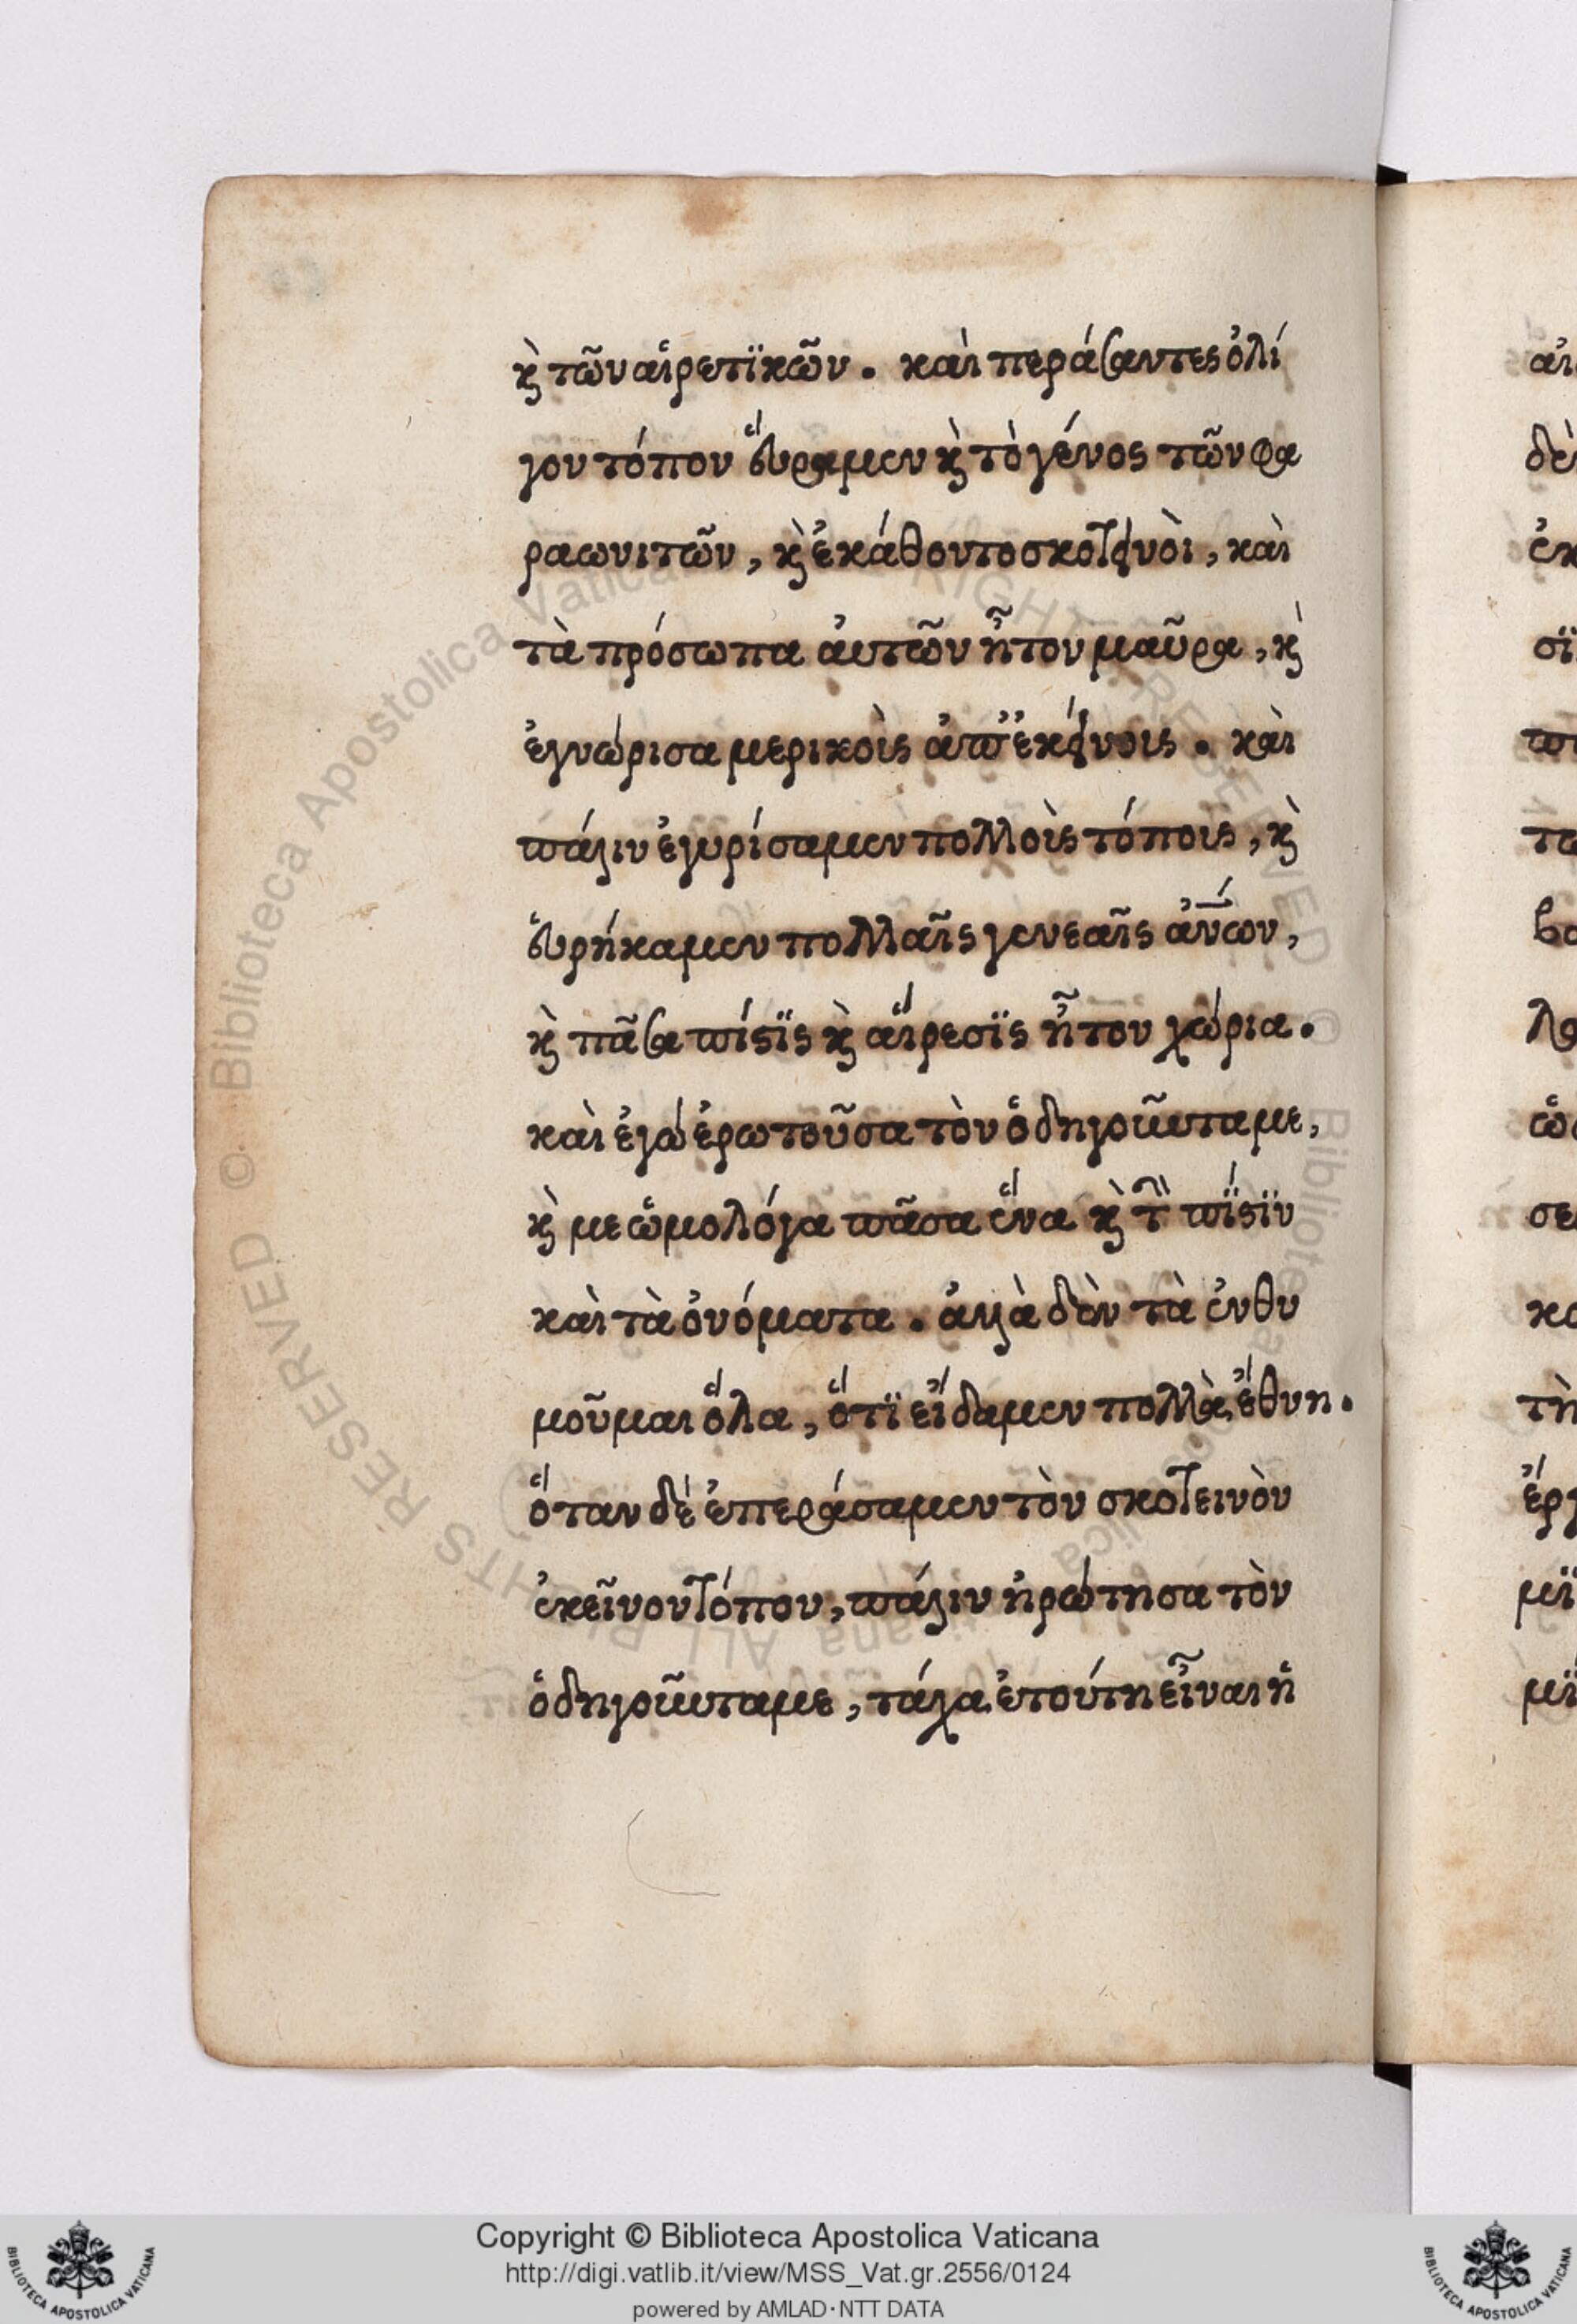 κὲ τῶν αἱρετϊκῶν. καὶ περάσαντες ὀλί
γον τόπον εὕραμεν κὲ τὸ γένος τῶν φα
ραωνιτῶν, κὲ ἐκάθοντο σκοτεινοὶ, καὶ
τὰ πρόσωπα ἀυτῶν ἦτον μαῦρα, κὲ
ἐγνώρισα μερικοὶς ἀπ' ἐκείνοις. καὶ
πάλιν ἐγυρίσαμεν πολλοὶς τόποις, κὲ
εὑρήκαμεν πολλαῖς γενεαῖς ἀν̅ων,
κὲ πᾶσα πίστϊς κὲ αἵρεσϊς ἦτον χώρια.
καὶ ἐγὼ ἐρωτοῦσα τὸν ὁδηγοῦντα με,
κὲ με ὡμολόγα πᾶσα ἕνα κὲ τὴ πίστϊν
καὶ τὰ ὀνόματα. ἀλλὰ δὲν τὰ ἐνθυ
μοῦμαι ὅλα, ὅτϊ εἴδαμεν πολλὰ ἔθνη.
ὅταν δὲ ἐπεράσαμεν τὸν σκοτεινὸν
ἐκεῖνον τόπον, πάλιν ἠρώτησα τὸν
ὁδηγοῦντα με, τάχα ἐτούτη εἶναι ἡ
Copyright © Biblioteca Apostolica Vaticana
http://digi.vatlib.it/view/MSS_Vat.gr.2556/0124
powered by AMLAD·NTT DATA